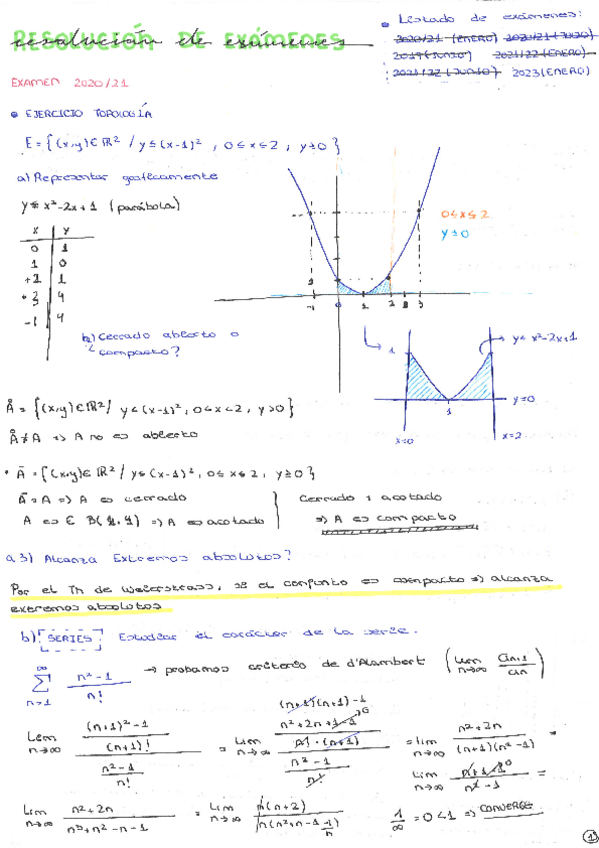 RESOLUCIÓN DE EXÁMENES
• Listado de exámenes:
2020/21 (ENERO) 2020/21 (JUNIO)
2019 (JUNIO) 2021/22 (ENERO)
2021/22 (JUNIO) 2023 (ENERO)
EXAMEN 2020/21
• EJERCICIO TOPOLOGÍA
E = {(x,y) ∈ ℝ² / y ≤ (x-1)², 0 ≤ x ≤ 2, y ≥ 0}
a) Representar gráficamente
y = x² - 2x + 1 (parábola)
x y
0 1
1 0
+2 1
+3 4
-1 4
0 ≤ x ≤ 2
y ≥ 0
-1 0 1 2 3
b) Cerrado abierto o
compacto?
1
y = x² - 2x + 1
y = 0
1
x = 0 x = 2
Å = {(x,y) ∈ ℝ² / y < (x-1)², 0 < x < 2, y > 0}
Å ≠ A => A no es abierto
• Ā = {(x,y) ∈ ℝ² / y ≤ (x-1)², 0 ≤ x ≤ 2, y ≥ 0}
Ā = A => A es cerrado
A es ∈ B(1,4) => A es acotado
Cerrado y acotado
=> A es compacto
a.3) Alcanza Extremos absolutos?
Por el Th de Weierstrass, si el conjunto es compacto => alcanza
extremos absolutos
b) SERIES Estudiar el carácter de la serie.
∞ Σ n=1 (n²-1)/n! → probamos criterio de d'Alambert (Lim n→∞ an+1/an)
Lim n→∞ (((n+1)²-1)/(n+1)!)/((n²-1)/n!) = Lim n→∞ ((n²+2n+1-1)/(n!·(n+1)))/((n²-1)/n!) = lim n→∞ (n²+2n)/((n+1)(n²-1)) =
(n+1)(n+1)-1
Lim n→∞
Lim n→∞ (n²+2n)/(n³+n²-n-1) = Lim n→∞ n(n+2)/(n(n²+n-1-1/n)) 1/∞ = 0 < 1 => CONVERGE
1